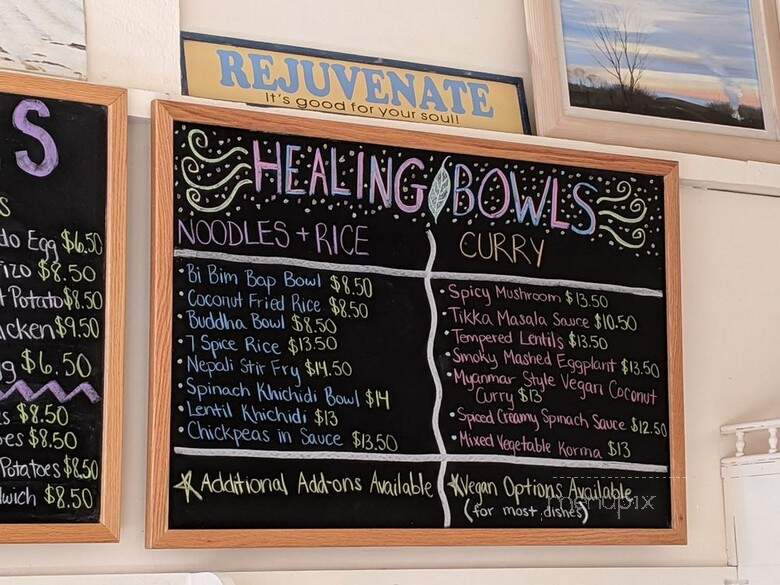 REJUVENATE
It's good for your soul!
S
s
do Egg $6.50
izo $8.50
Potato $8.50
icken $9.50
$6.50
$8.50
oes $8.50
Potatoes $8.50
dwich $8.50
HEALING BOWLS
NOODLES + RICE
• Bi Bim Bap Bowl $8.50
• Coconut Fried Rice $8.50
• Buddha Bowl $8.50
• 7 Spice Rice $13.50
• Nepali Stir Fry $14.50
• Spinach Khichidi Bowl $14
• Lentil Khichidi $13
• Chickpeas in Sauce $13.50
Additional Add-ons Available
CURRY
• Spicy Mushroom $13.50
• Tikka Masala Sauce $10.50
• Tempered Lentils $13.50
• Smoky Mashed Eggplant $13.50
• Myanmar Style Vegan Coconut
Curry $13
• Spiced Creamy Spinach Sauce $12.50
• Mixed Vegetable Korma $13
Vegan Options Available
(for most dishes)
menupix